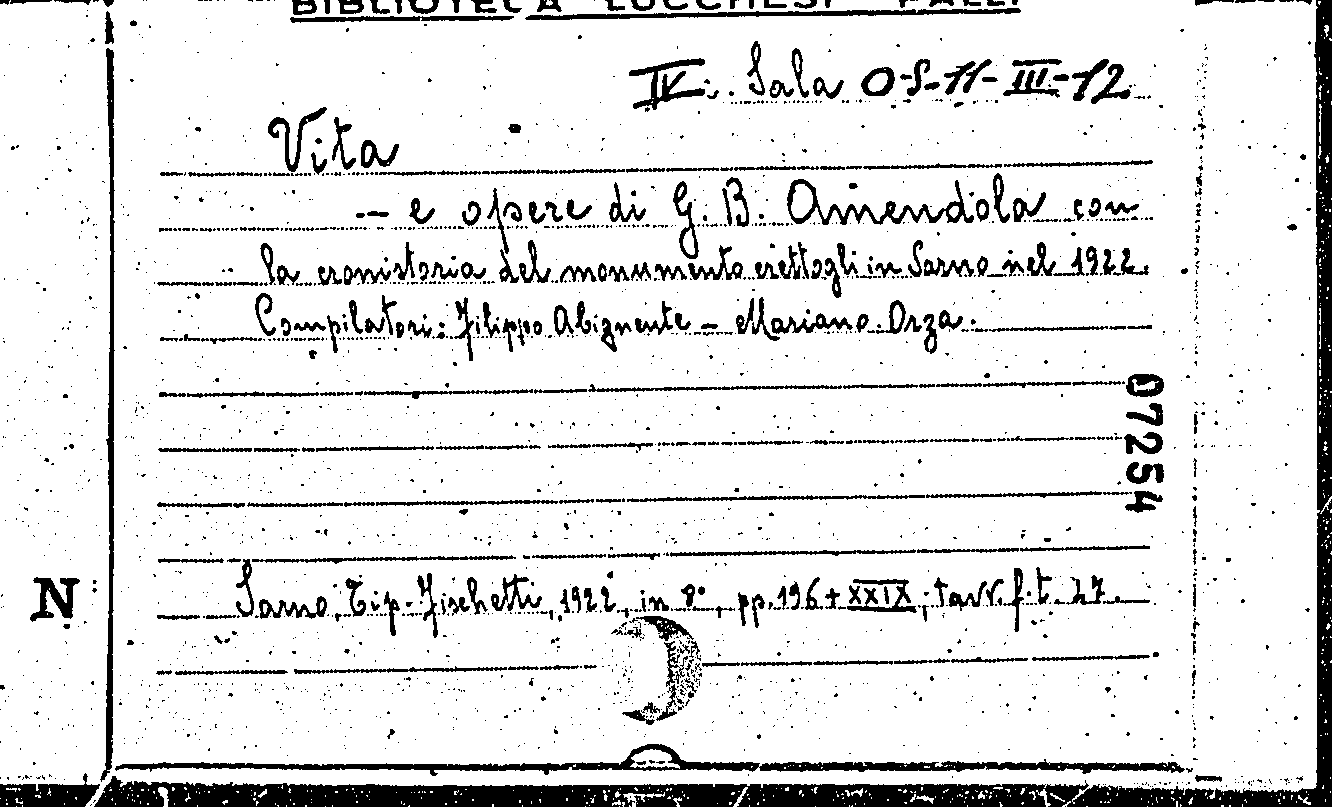 BIBLIOTECA LUCCHESI PALLI
IV. Sala O-S-11-III-12
Vita
-- e opere di G. B. Amendola con
la cronistoria del monumento erettogli in Sarno nel 1922.
Compilatori: Filippo Abignente - Mariano Orza.
07254
N
Sarno, Tip. Fischetti, 1922, in 8°, pp. 196 + XXIX; tavv. f. t. 27.